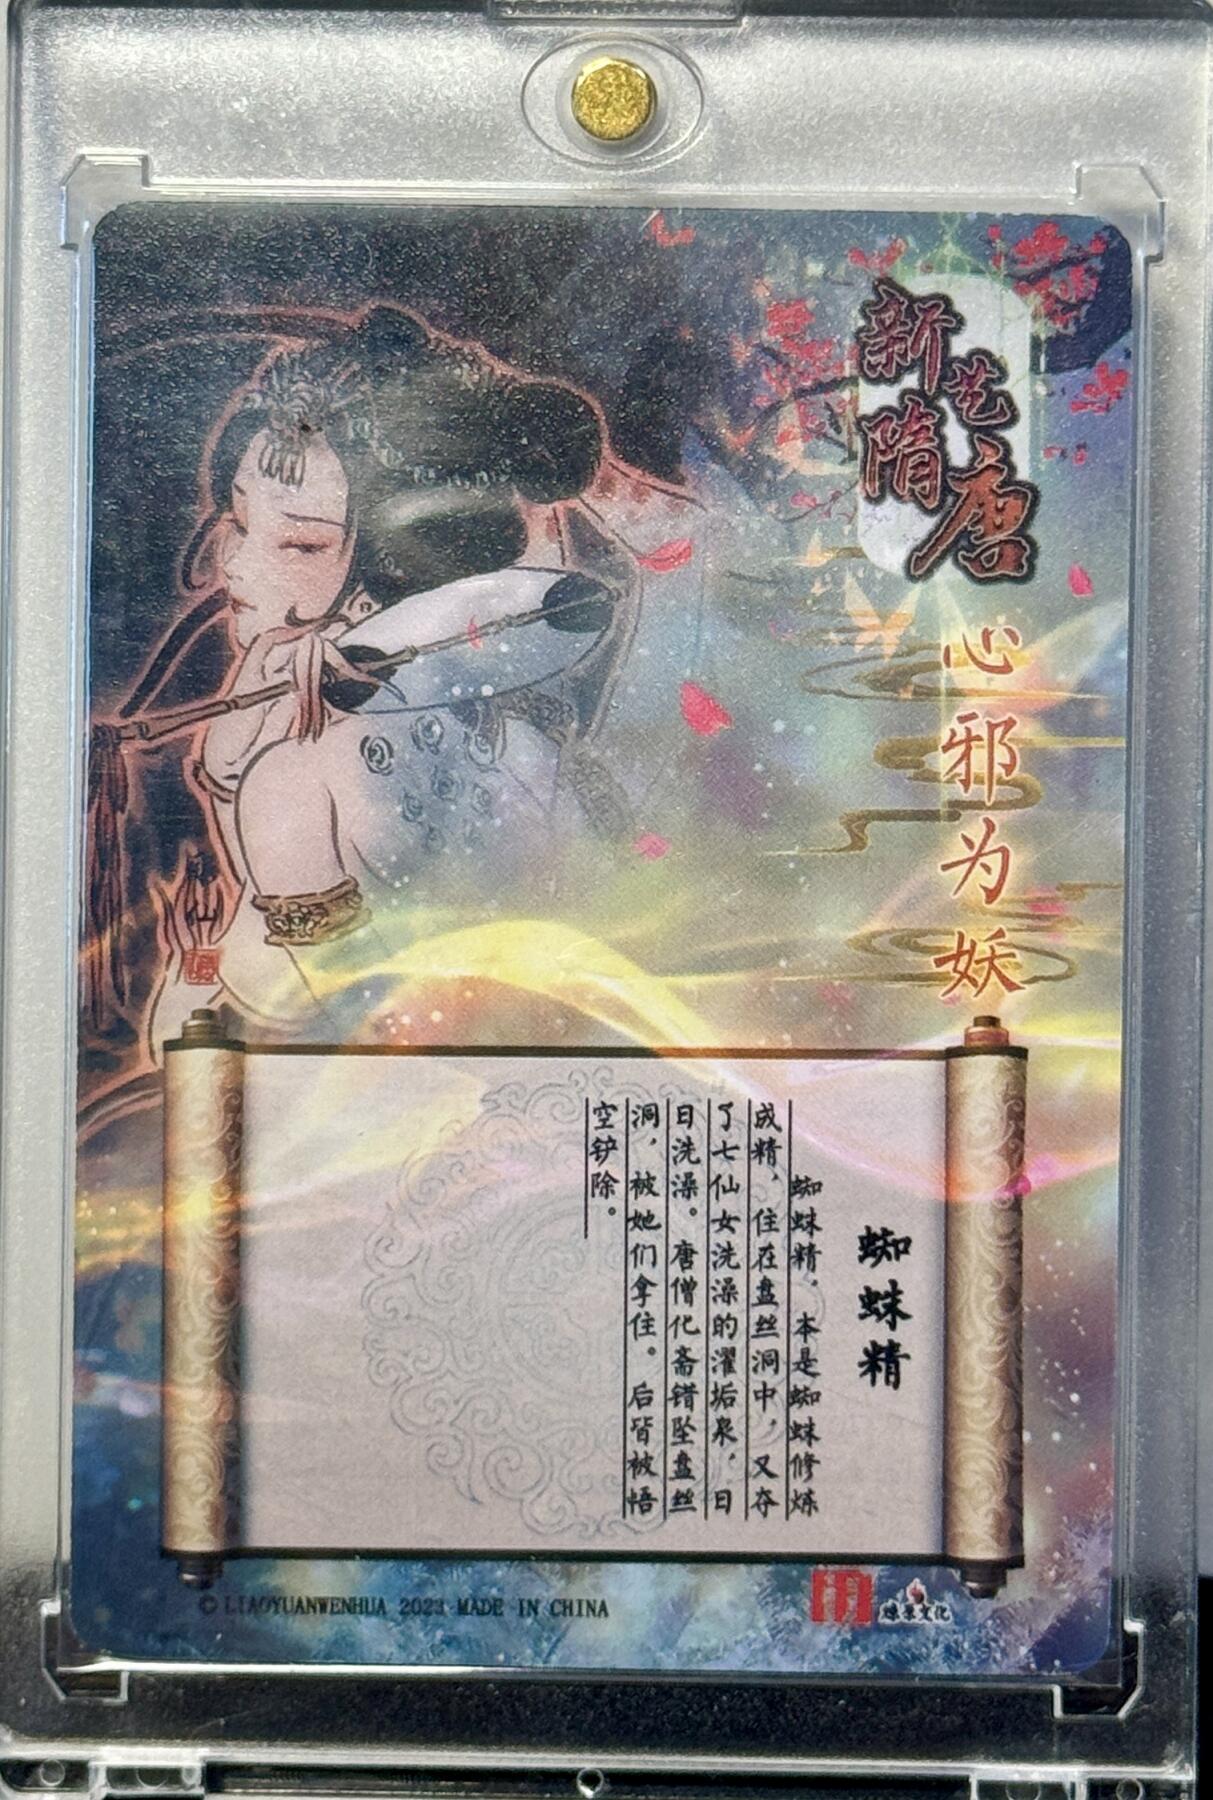 新艺隋唐
心邪为妖
蜘蛛精
蜘蛛精，本是蜘蛛修炼
成精，住在盘丝洞中，又夺
了七仙女洗澡的濯垢泉，日
日洗澡。唐僧化斋错坠盘丝
洞，被她们拿住。后皆被悟
空铲除。
© LIAOYUANWENHUA 2023 MADE IN CHINA
燎原文化